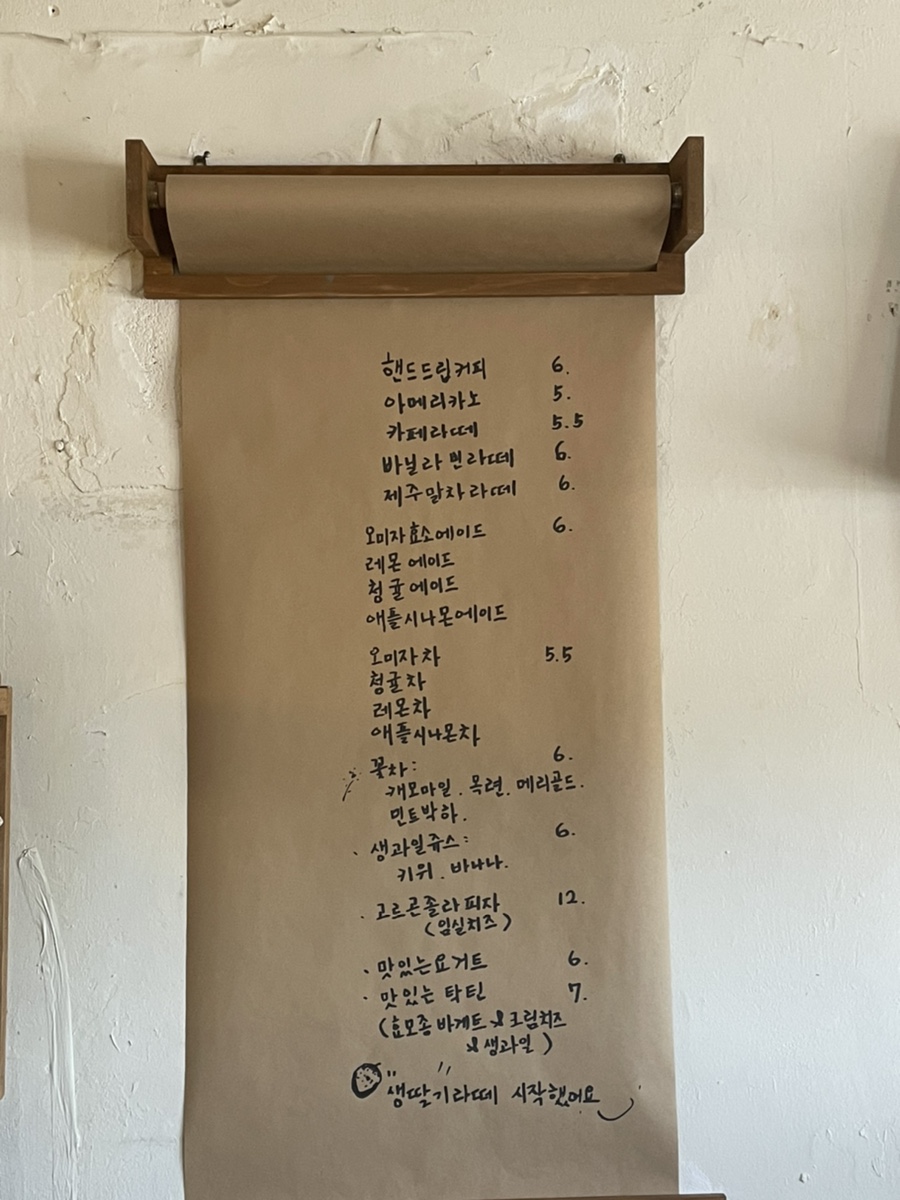 핸드드립커피 6.
아메리카노 5.
카페라떼 5.5
바닐라빈라떼 6.
제주말차라떼 6.
오미자효소에이드 6.
레몬에이드
청귤에이드
애플시나몬에이드
오미자차 5.5
청귤차
레몬차
애플시나몬차
꽃차: 6.
캐모마일. 목련. 메리골드.
민트박하.
· 생과일쥬스: 6.
키위. 바나나.
· 고르곤졸라피자 12.
(임실치즈)
· 맛있는요거트 6.
· 맛있는 탁틴 7.
(효모종바게트 & 크림치즈
& 생과일)
"생딸기라떼" 시작했어요